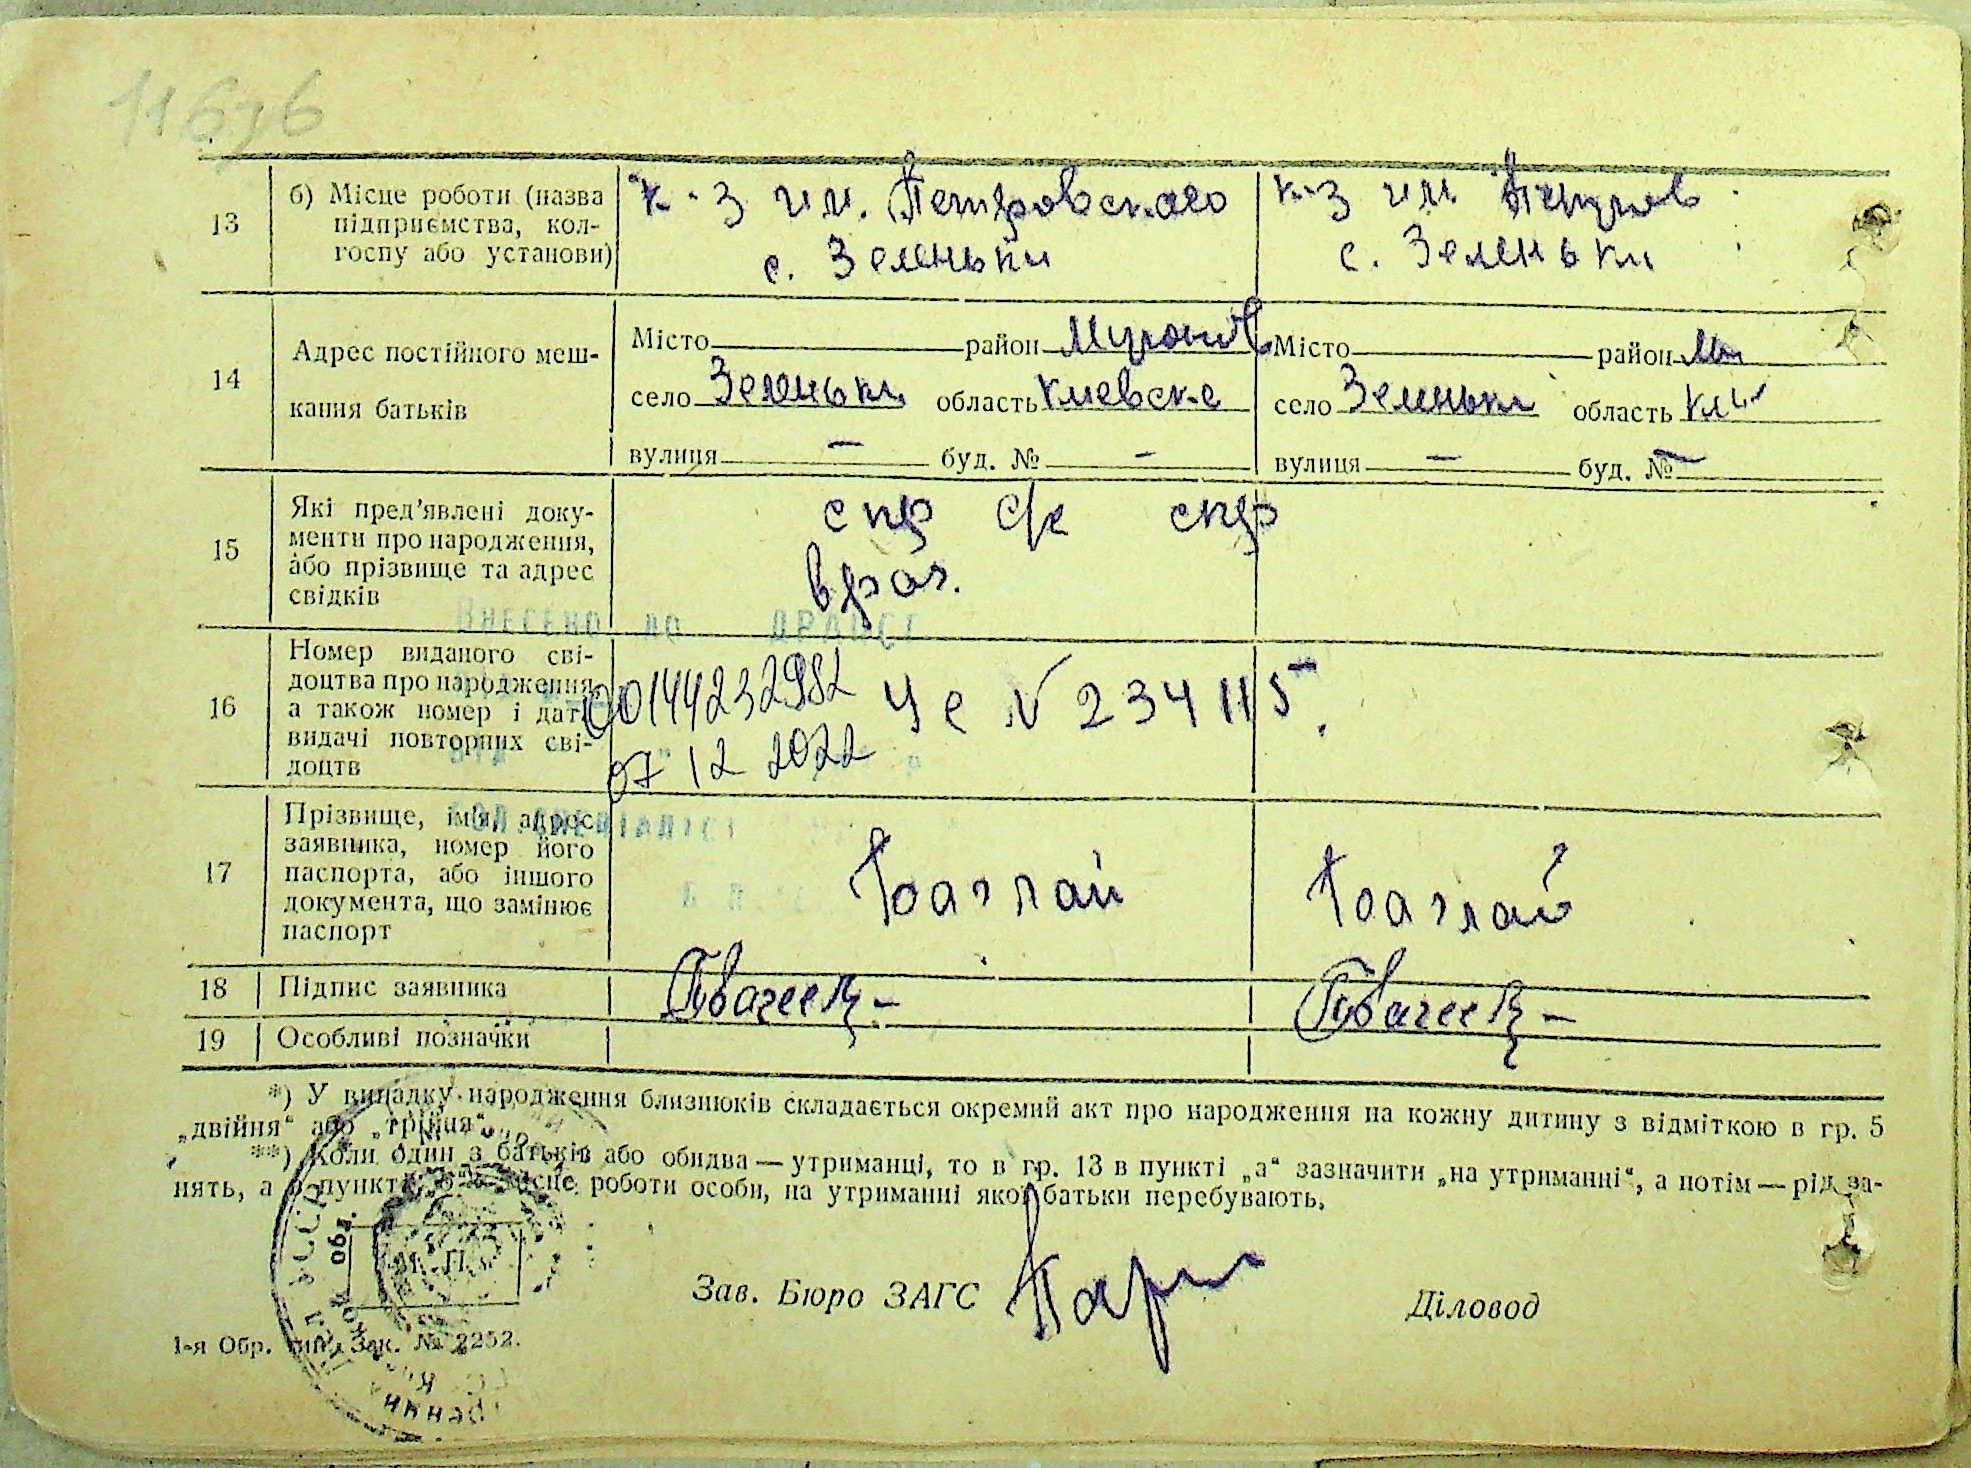 13
б) Місце роботи (назва
підприємства, кол-
госпу або установи)
к-з им. Петровского
с. Зеленьки
к-з им. Петров
с. Зеленьки
14
Адрес постійного меш-
кання батьків
Місто район Миронів
село Зеленьки область Киевске
вулиця — буд. № -
Місто район Ми
село Зеленьки область
вулиця — буд. № —
15
Які пред'явлені доку-
менти про народження,
або прізвище та адрес
свідків
спр с/с спр
врач.
Внесено до
16
Номер виданого сві-
доцтва про народження,
а також номер і дат
видачі повторних сві-
доцтв
00144232982
07 12 2022
Че № 234115
17
Прізвище, ім'я, адрес
заявника, номер його
паспорта, або іншого
документа, що замінює
паспорт
Баглай
Баглай
18
Підпис заявника
19
Особливі позначки
*) У випадку народження близнюків складається окремий акт про народження на кожну дитину з відміткою в гр. 5
„двійня“ або „трійня“.
**) Коли один з батьків або обидва — утриманці, то в гр. 13 в пункті „а“ зазначити „на утриманні“, а потім — рід за-
нять, а в пункті місце роботи особи, на утриманні якої батьки перебувають.
обл.
М. П.
Зав. Бюро ЗАГС
Діловод
1-я Обр. тип. Зак. № 2252.